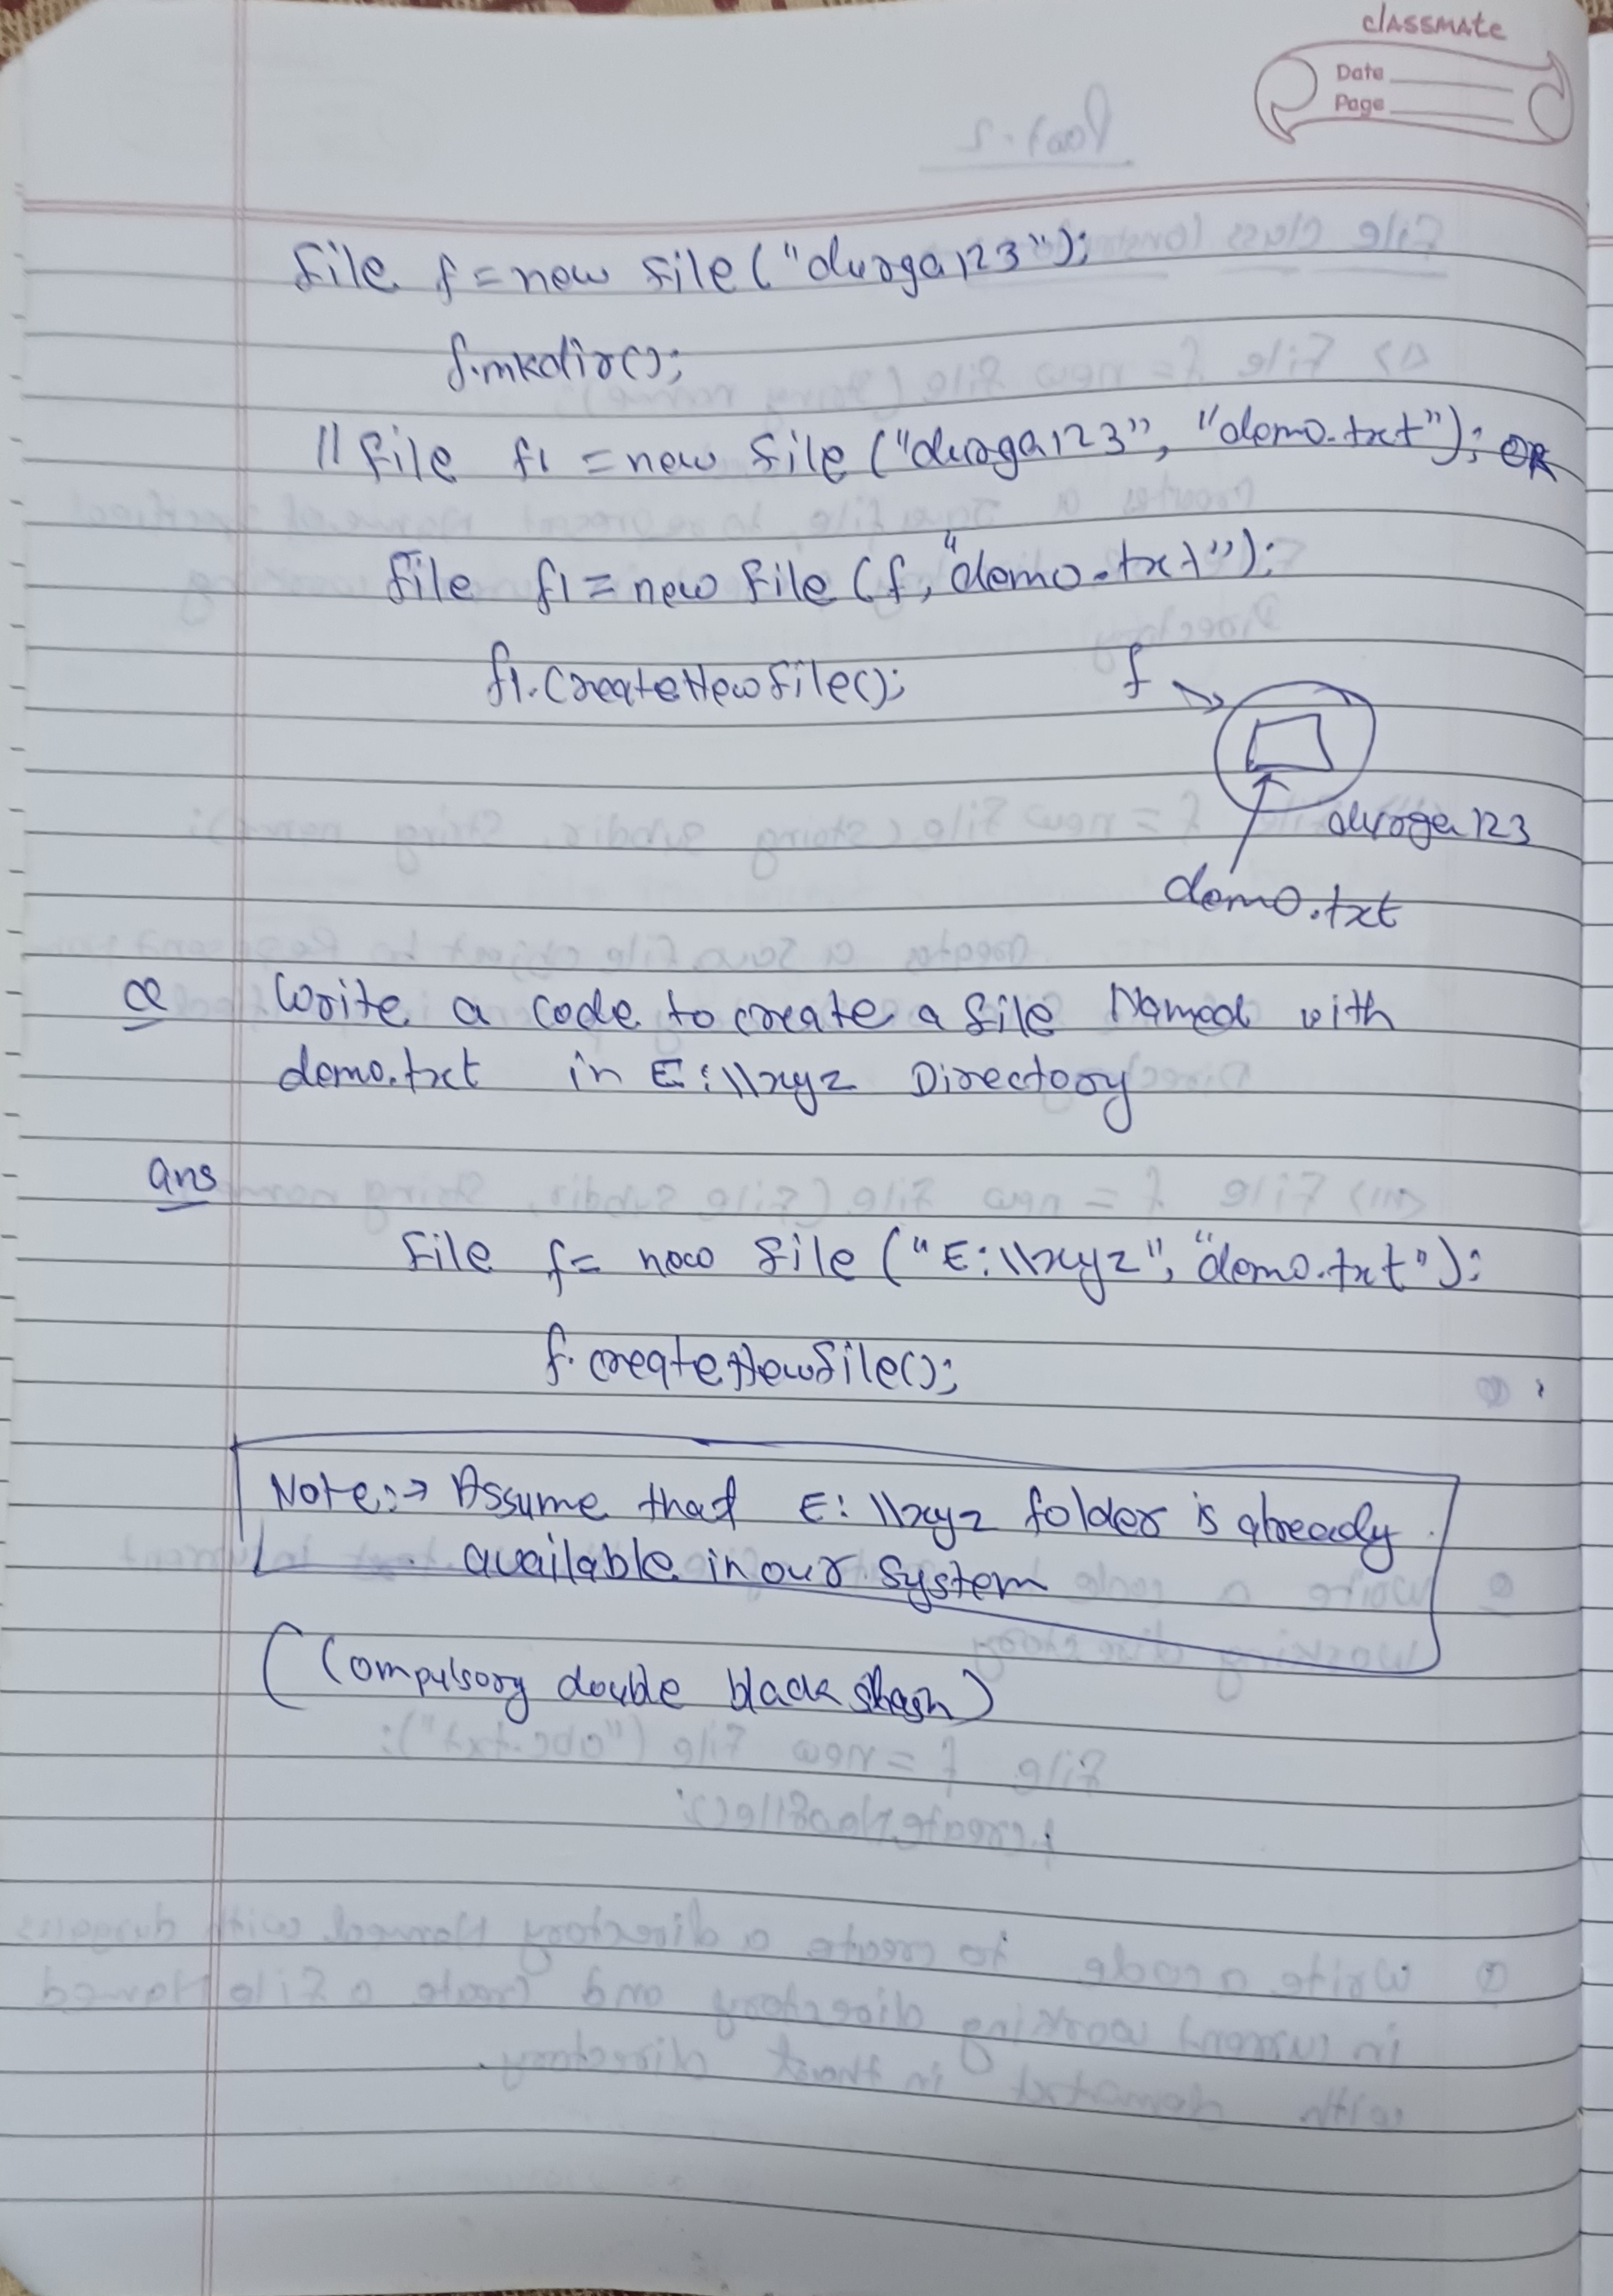 classmate
Date
Page
File f = new File ("durga123");
f.mkdir();
// File f1 = new File ("durga123", "demo.txt"); OR
File f1 = new File (f, "demo.txt");
f1.CreateNewFile();
f
durga123
demo.txt
Q Write a code to create a file Named with
demo.txt in E:\\xyz Directory
ans
File f = new File ("E:\\xyz", "demo.txt");
f.createNewFile();
Note:→ Assume that E:\\xyz folder is already
available in our system
(Compulsory double black slash)